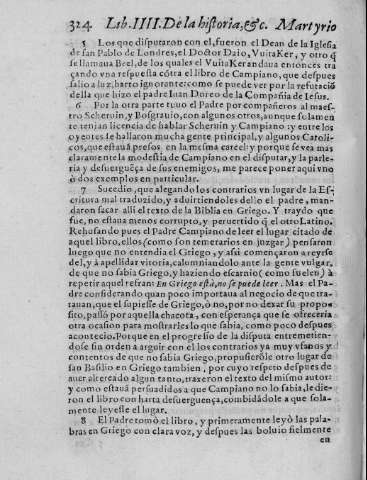 324 Lib. IIII. De la historia, &c. Martyrio
5 Los que disputaron con el, fueron el Dean de la Iglesia
de san Pablo de Londres, el Doctor Daio, VuitaKer, y otro q̃
se llamaua Beel, de los quales el VuitaKer andaua entonces tra
çando vna respuesta cõtra el libro de Campiano, que despues
salio a luz, harto ignorante: como se puede ver por la refutació
della que hizo el padre Iuan Doreo de la Compañia de Iesus.
6 Por la otra parte tuuo el Padre por compañeros al maes-
tro Scheruin, y Bosgrauio, con algunos otros, aunque solamen
te tenian licencia de hablar Scheruin y Campiano: y entre los
oyentes se hallaron mucha gente principal, y algunos Catoli-
cos, que estauã presos en la mesma carcel: y porque se vea mas
claramente la modestia de Campiano en el disputar, y la parle-
ria y desuerguẽça de sus enemigos, me parece poner aqui vno
ò dos exemplos en particular.
7 Sucedio, que alegando los contrarios vn lugar de la Es-
critura mal traduzido, y aduirtiendoles dello el padre, man-
daron sacar alli el texto de la Biblia en Griego. Y traydo que
fue, no estaua menos corrupto, y peruertido q̃ el otro Latino.
Rehusando pues el Padre Campiano de leer el lugar citado de
aquel libro, ellos (como son temerarios en juzgar) pensaron
luego que no entendia el Griego, y assi començaron a reyrse
del, y à apellidar vitoria, calomniandolo ante la gente vulgar,
de que no sabia Griego, y haziendo escarnio (como suelen) à
repetir aquel refran: En Griego està, no se puede leer. Mas el Pa-
dre considerando quan poco importaua al negocio de que tra-
tauan, que el supiesse de Griego, ò no, por no dexar su propos
sito, passò por aquella chacota, con esperança que se ofreceria
otra ocasion para mostrarles lo que sabia, como poco despues
acontecio. Porque en el progresso de la disputa entremetien-
dose sin orden a arguir con el los contrarios ya muy vfanos y
contentos de que no sabia Griego, propusierõle otro lugar de
san Basilio en Griego tambien, por cuyo respeto despues de
auer altercado algun tanto, traxeron el texto del mismo autor:
y como estauã persuadidos a que Campiano no lo sabia, le die-
ron el libro con harta desuerguença, combidãdole a que sola-
mente leyesse el lugar.
8 El Padre tomò el libro, y primeramente leyò las pala-
bras en Griego con clara voz, y despues las boluio fielmente
en